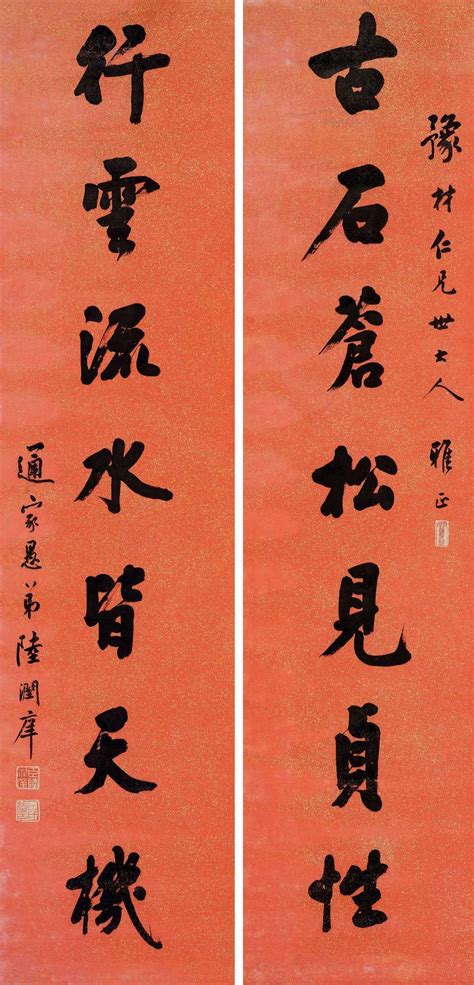 豫材仁兄世大人 雅正
古石蒼松見貞性
行雲流水皆天機
通家愚弟陸潤庠